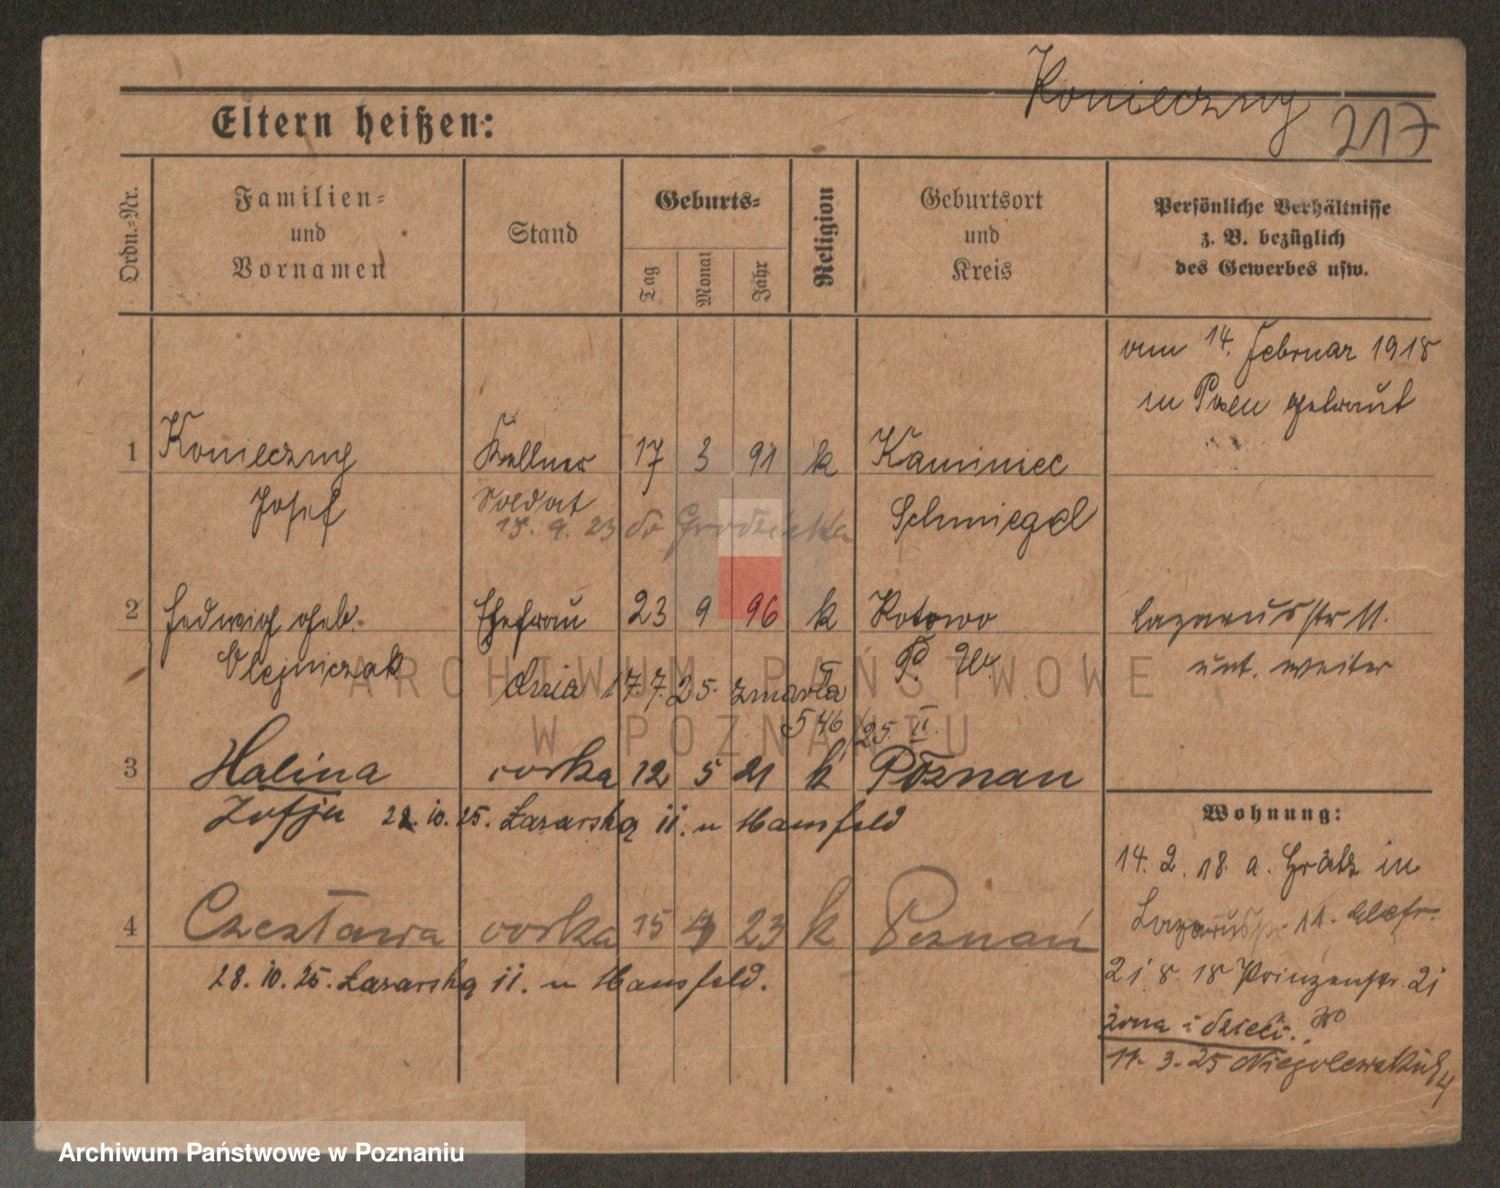 Konieczny 217
Eltern heißen:
Ordn.-Nr.
Familien-
und
Vornamen
Stand
Geburts-
Tag
Monat
Jahr
Religion
Geburtsort
und
Kreis
Persönliche Verhältnisse
z. B. bezüglich
des Gewerbes usw.
am 14. Februar 1918
in Posen getraut
1 Konieczny Kellner 17 3 91 k Kaminiec
Josef Soldat Schmiegel
15. 9. 23 do Grodziska
2 Hedwig geb. Ehefrau 23 9 96 k Kotowo Lazarusstr 11.
Olejniczak P. W. unt. weiter
dnia 17.7.25. zmarła
546/25. II.
3 Halina corka 12 5 21 k Poznan
Zofja 22. 10. 25. Łazarska 11. u Hansfeld
Wohnung:
14. 2. 18. a. Grätz in
Lazarusstr. 11.
4 Czesława corka 15 4 23 k Poznań
28. 10. 25. Łazarska 11. u Hansfeld.
21. 8. 18 Prinzenstr. 21
żona i dzieci.
11. 3. 25
ARCHIWUM PAŃSTWOWE
W POZNANIU
Archiwum Państwowe w Poznaniu